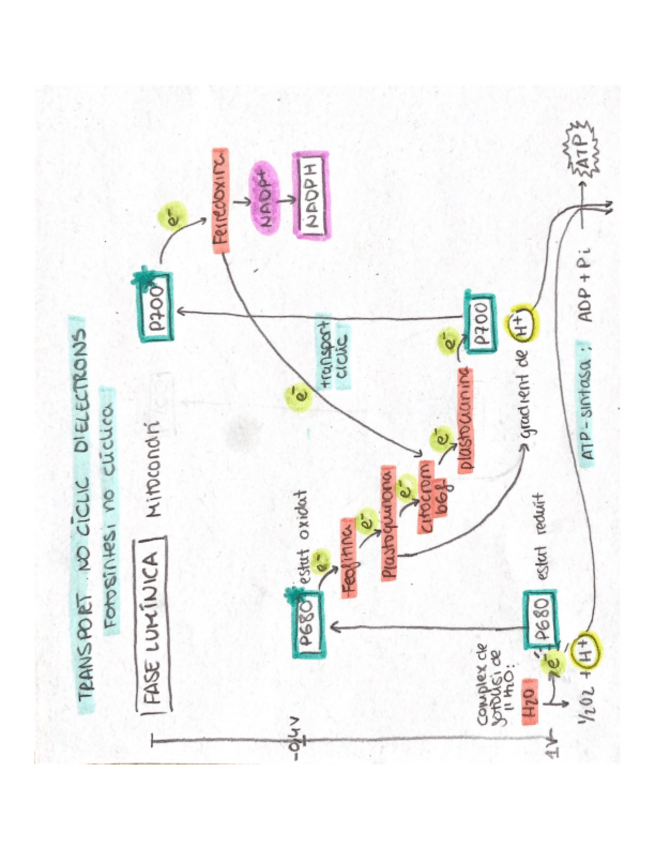 TRANSPORT NO CÍCLIC D'ELECTRONS
Fotosíntesi no cíclica
FASE LUMÍNICA
Mitocondri
P700*
e-
Ferredoxina
NADP+
NADPH
-0,4V
P680*
estat oxidat
e-
Feofitina
e-
Plastoquinona
e-
citocrom
b6f
e-
plastocianina
e-
P700
e-
transport
cíclic
complex de
fotòlisi de
H2O
1V
P680
estat reduit
e-
1/2O2 + H+
gradient de H+
ATP-sintasa: ADP + Pi
ATP